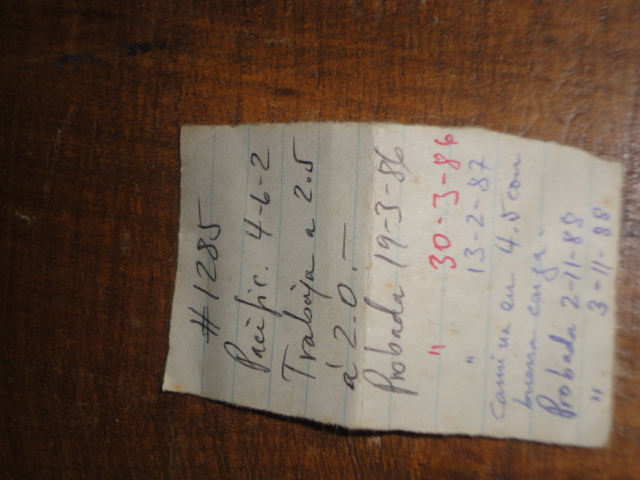 #1285
Pacific. 4-6-2
Trabaja a 2.5
á 2.0.—
Probada 19-3-86
" 30-3-86
" 13-2-87
Camina en 4.5 con
buena carga.
Probada 2-11-88
" 3-11-88